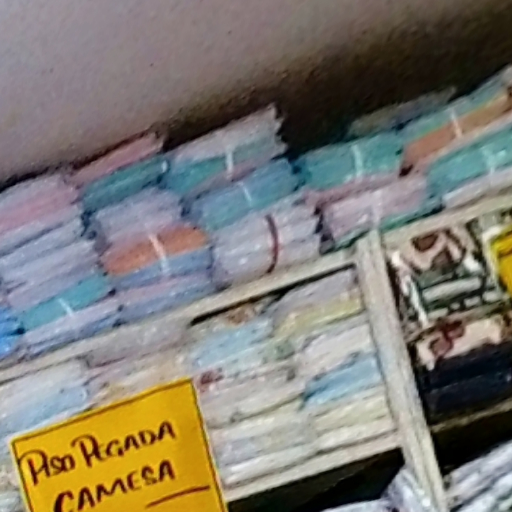 PISO PEGADA
CAMESA